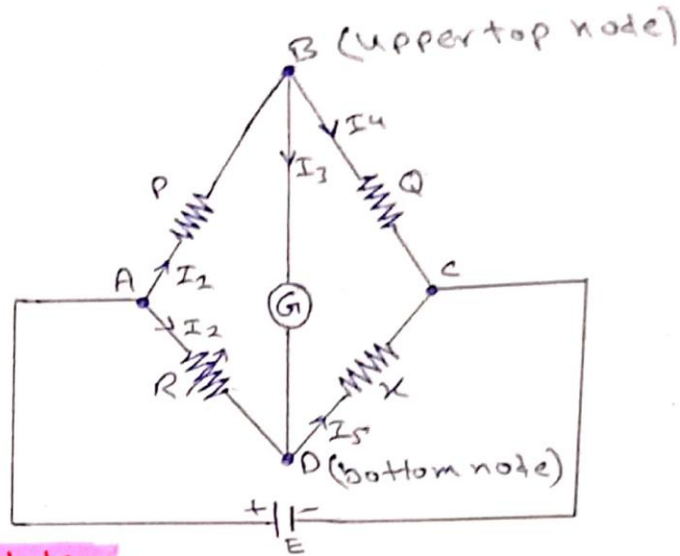 B (upper top node)
I4
I3
P
Q
A
I2
C
G
I2
R
x
I5
D (bottom node)
+
-
E